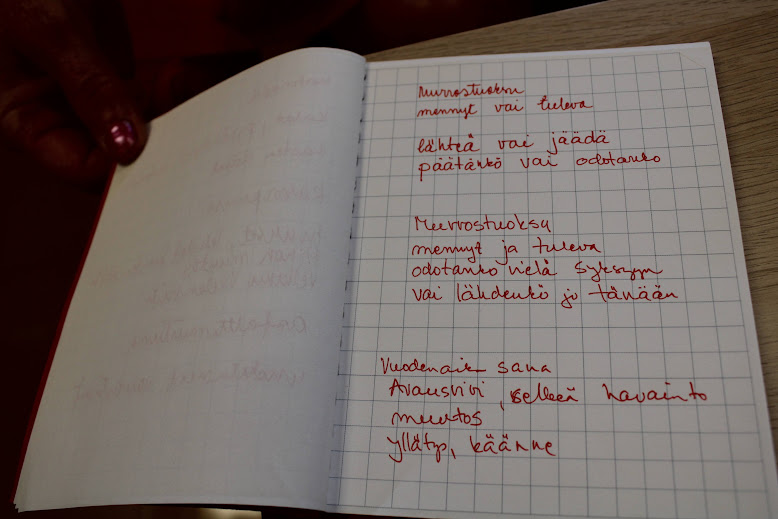 Murrostuoksu
mennyt vai tuleva
lähteä vai jäädä
päätänkö vai odotanko
Murrostuoksu
mennyt ja tuleva
odotanko vielä syksyyn
vai lähdenkö jo tänään
Vuodenaika sana
Avausrivi, selkeä havainto
muutos
yllätys, käänne